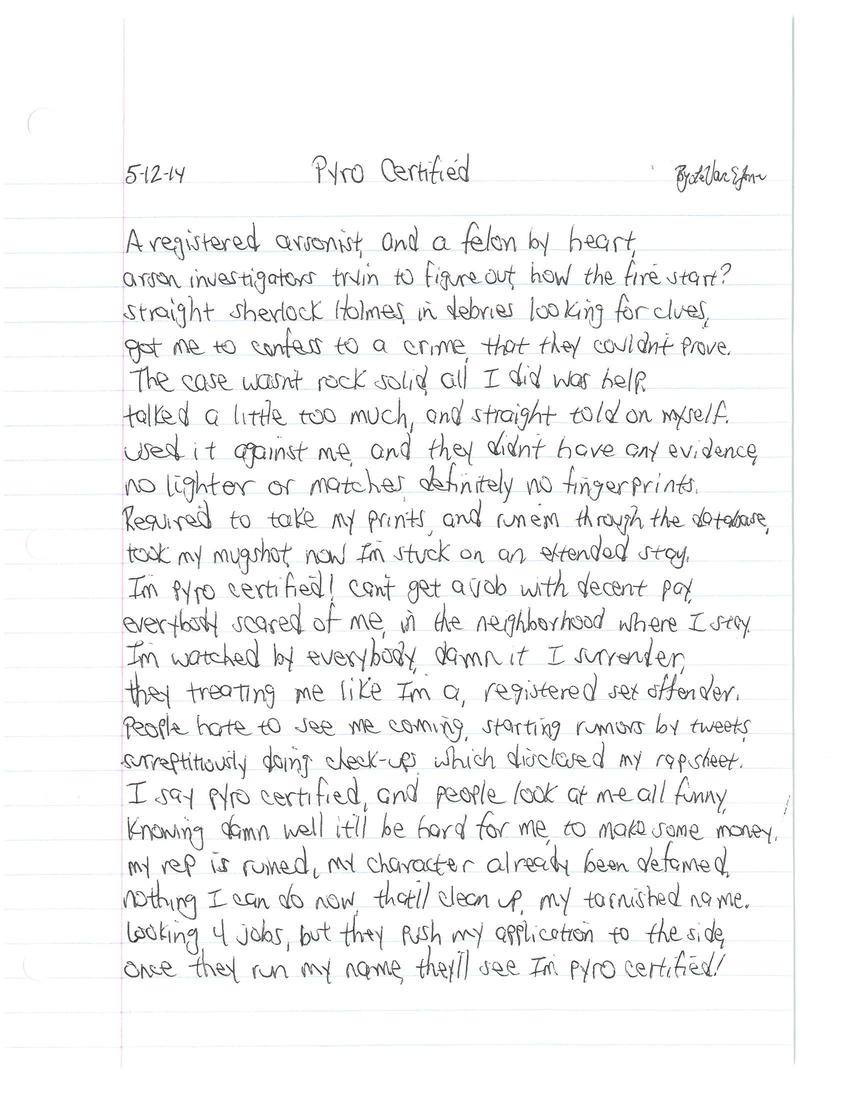 5-12-14 Pyro Certified By
A registered arsonist, and a felon by heart,
arson investigators tryin to figure out, how the fire start?
straight sherlock Holmes, in debries looking for clues,
got me to confess to a crime, that they couldn't prove.
The case wasn't rock solid, all I did was help,
talked a little too much, and straight told on myself.
used it against me, and they didn't have any evidence,
no lighter or matches, definitely no fingerprints.
Required to take my prints, and run em through the database,
took my mugshot, now I'm stuck on an extended stay.
I'm pyro certified! can't get a job with decent pay,
everybody scared of me, in the neighborhood where I stay.
I'm watched by everybody, damn it I surrender,
they treating me like I'm a, registered sex offender.
People hate to see me coming, starting rumors by tweets,
surreptitiously doing check-ups, which disclosed my rap sheet.
I say pyro certified, and people look at me all funny,
Knowing damn well it'll be hard for me, to make some money.
my rep is ruined, my character already been defamed,
nothing I can do now, that'll clean up, my tarnished name.
Looking 4 jobs, but they push my application to the side,
once they run my name, they'll see I'm pyro certified!